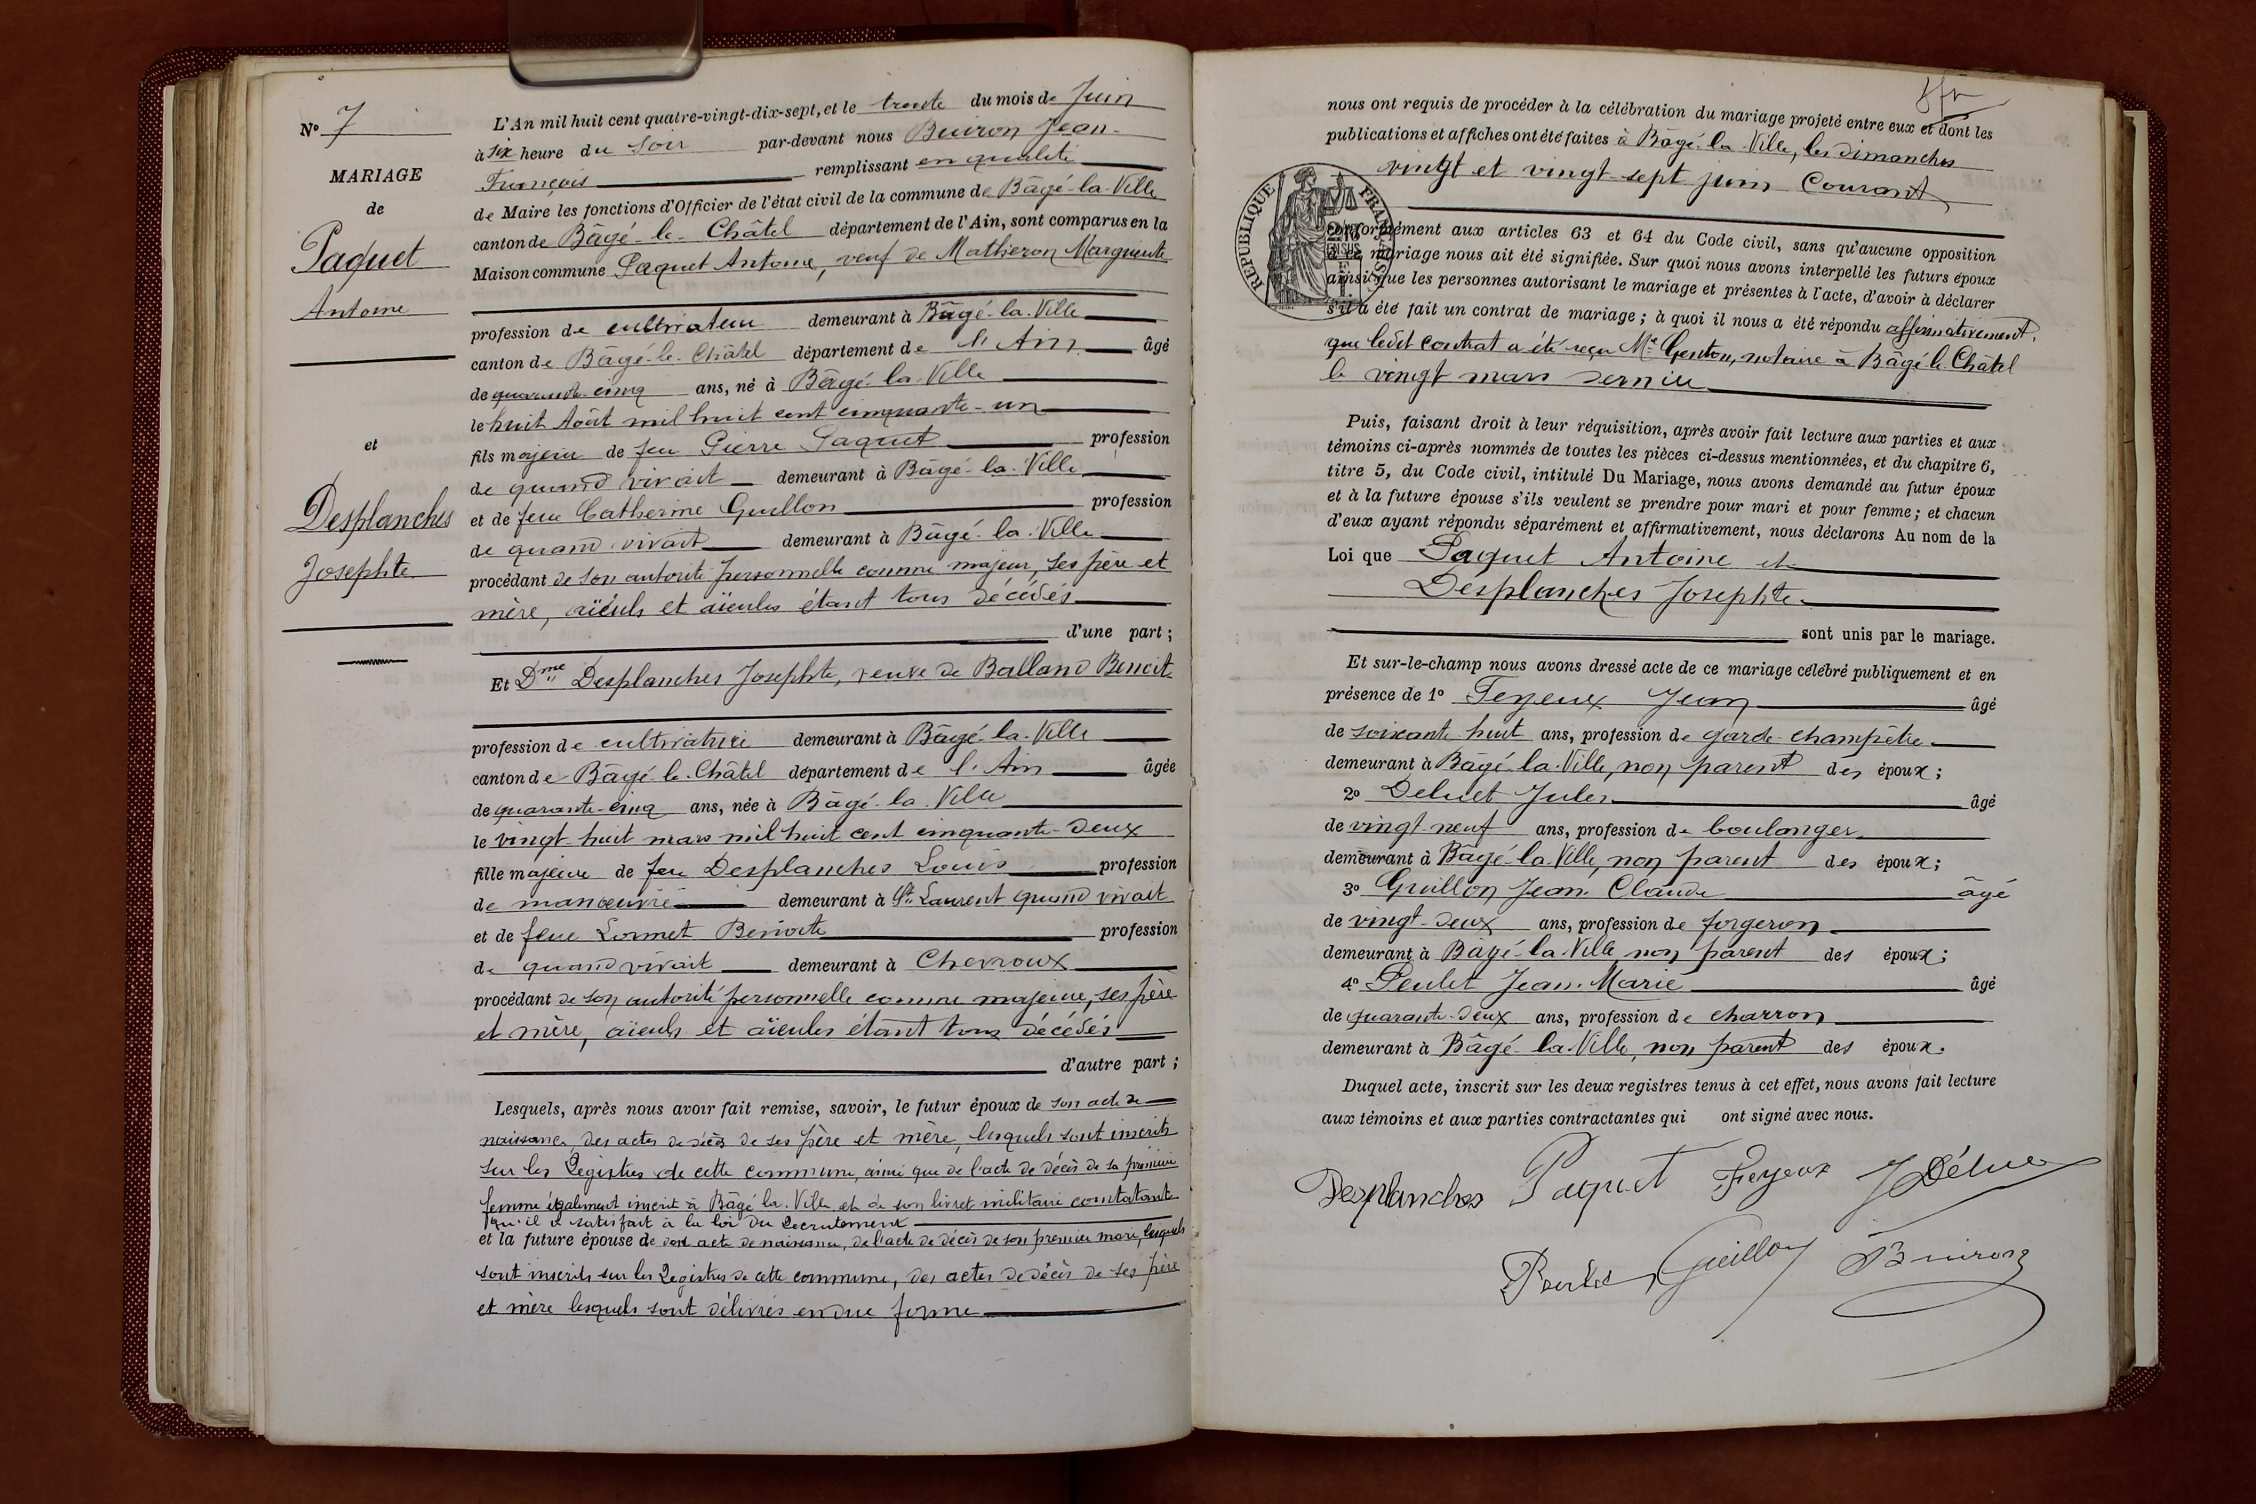 N° 7
MARIAGE
de
Paquet
Antoine
et
Desplanches
Josephte
L'An mil huit cent quatre-vingt-dix-sept, et le trente du mois de Juin
à six heure du soir par-devant nous Buiron Jean-
François remplissant en qualité
de Maire les fonctions d'Officier de l'état civil de la commune de Bâgé-la-Ville
canton de Bâgé-le-Châtel département de l'Ain, sont comparus en la
Maison commune Paquet Antoine, veuf de Matheron Marguerite
profession de cultivateur demeurant à Bâgé-la-Ville
canton de Bâgé-le-Châtel département de l'Ain âgé
de quarante-cinq ans, né à Bâgé-la-Ville
le huit Août mil huit cent cinquante-un
fils majeur de feu Pierre Paquet profession
de quand vivait demeurant à Bâgé-la-Ville
et de feue Catherine Guillon profession
de quand vivait demeurant à Bâgé-la-Ville
procédant de son autorité personnelle comme majeur, ses père et
mère, aïeuls et aïeules étant tous décédés
d'une part ;
Et Dme Desplanches Josephte, veuve de Balland Benoit
profession de cultivatrice demeurant à Bâgé-la-Ville
canton de Bâgé-le-Châtel département de l'Ain âgée
de quarante-cinq ans, née à Bâgé-la-Ville
le vingt-huit mars mil huit cent cinquante-deux
fille majeure de feu Desplanches Louis profession
de manœuvre demeurant à St Laurent quand vivait
et de feue Lormet Benoite profession
de quand vivait demeurant à Chevroux
procédant de son autorité personnelle comme majeure, ses père
et mère, aïeuls et aïeules étant tous décédés
d'autre part ;
Lesquels, après nous avoir fait remise, savoir, le futur époux de son acte de
naissance, des actes de décès de ses père et mère, lesquels sont inscrits
sur les Registres de cette commune, ainsi que de l'acte de décès de sa première
femme également inscrit à Bâgé-la-Ville et de son livret militaire constatant
qu'il a satisfait à la loi du Recrutement
et la future épouse de son acte de naissance, de l'acte de décès de son premier mari, lesquels
sont inscrits sur les Registres de cette commune, des actes de décès de ses père
et mère lesquels sont délivrés en due forme
nous ont requis de procéder à la célébration du mariage projeté entre eux et dont les
publications et affiches ont été faites à Bâgé-la-Ville, les dimanches
vingt et vingt-sept juin Courant
REPUBLIQUE FRANÇAISE
conformément aux articles 63 et 64 du Code civil, sans qu'aucune opposition
à ce mariage nous ait été signifiée. Sur quoi nous avons interpellé les futurs époux
ainsi que les personnes autorisant le mariage et présentes à l'acte, d'avoir à déclarer
s'il a été fait un contrat de mariage ; à quoi il nous a été répondu affirmativement,
que ledit contrat a été reçu Me Genton, notaire à Bâgé-le-Châtel
le vingt mars dernier
Puis, faisant droit à leur réquisition, après avoir fait lecture aux parties et aux
témoins ci-après nommés de toutes les pièces ci-dessus mentionnées, et du chapitre 6,
titre 5, du Code civil, intitulé Du Mariage, nous avons demandé au futur époux
et à la future épouse s'ils veulent se prendre pour mari et pour femme ; et chacun
d'eux ayant répondu séparément et affirmativement, nous déclarons Au nom de la
Loi que Paquet Antoine et
Desplanches Josephte
sont unis par le mariage.
Et sur-le-champ nous avons dressé acte de ce mariage célébré publiquement et en
présence de 1° Feyeux Jean âgé
de soixante-huit ans, profession de garde-champêtre
demeurant à Bâgé-la-Ville, non parent des époux ;
2° Deluet Jules âgé
de vingt-neuf ans, profession de boulanger
demeurant à Bâgé-la-Ville, non parent des époux ;
3° Guillon Jean-Claude âgé
de vingt-deux ans, profession de forgeron
demeurant à Bâgé-la-Ville non parent des époux ;
4° Peulet Jean-Marie âgé
de quarante-deux ans, profession de charron
demeurant à Bâgé-la-Ville, non parent des époux.
Duquel acte, inscrit sur les deux registres tenus à cet effet, nous avons fait lecture
aux témoins et aux parties contractantes qui ont signé avec nous.
Desplanches Paquet Feyeux
Guillon Buiron